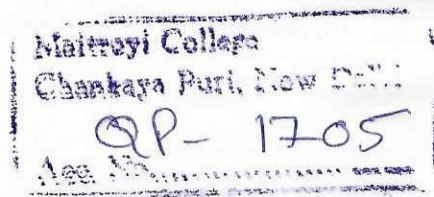 Maitreyi College
Chankaya Puri, New Delhi
QP- 1705
Acc. No.